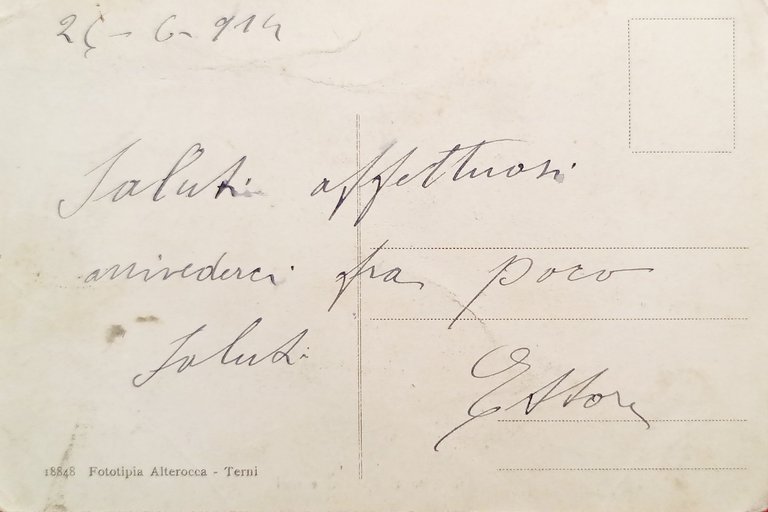 25-6-914
Saluti affettuosi
arrivederci fra poco
Saluti
Ettore
18848 Fototipia Alterocca - Terni